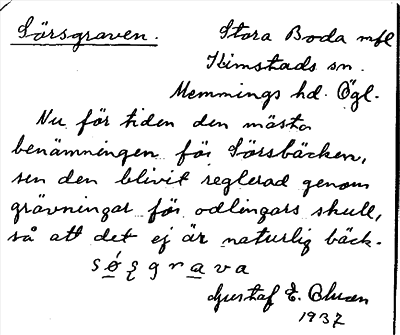 Sörsgraven. Stora Boda mfl
Kimstads sn.
Memmings hd. Ögl.
Nu för tiden den mästa
benämningen för Sörsbäcken,
sen den blivit reglerad genom
grävningar för odlingars skull,
så att det ej är naturlig bäck.
sǿʂgrava
Gustaf E.
1937